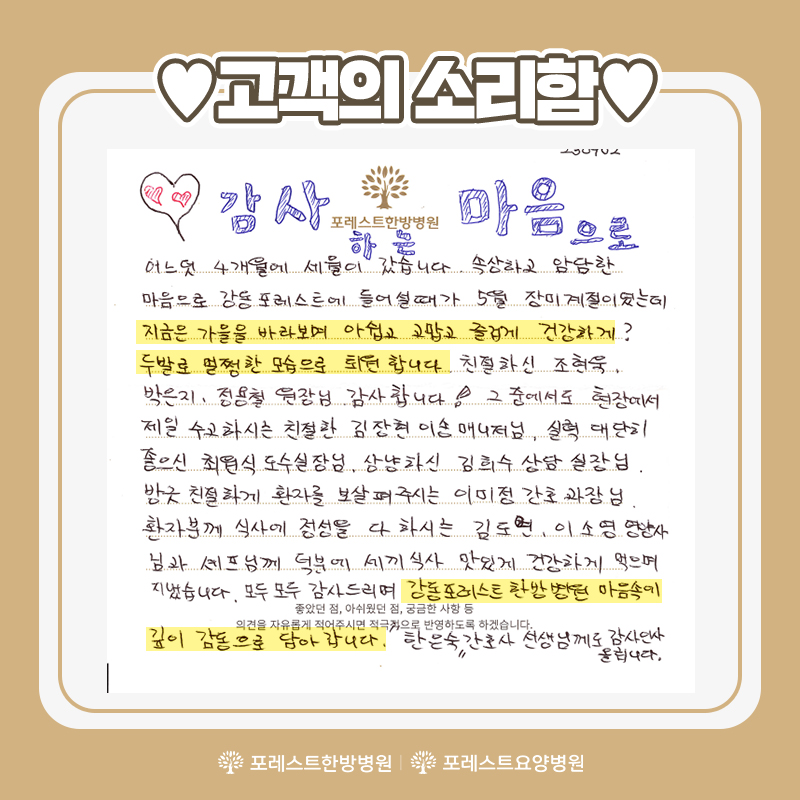 ♥고객의 소리함♥
감사 하는 마음으로
포레스트한방병원
어느덧 4개월에 세월이 갔습니다. 속상하고 암담한
마음으로 강동포레스트에 들어설때가 5월 장미계절이였는데
지금은 가을을 바라보며 아쉽고 고맙고 즐겁게 건강하게?
두발로 멀쩡한 모습으로 퇴원합니다. 친절하신 조현욱,
박은지, 정용철 원장님 감사합니다! 그 중에서도 현장에서
제일 수고하시는 친절한 김장현 이송매니저님, 실력 대단히
좋으신 최원식 도수실장님, 상냥하신 김희수 상담 실장님.
방긋 친절하게 환자를 보살펴주시는 이미정 간호과장님.
환자분께 식사에 정성을 다 하시는 김도연, 이소영 영양사
님과 셰프님께 덕분에 세끼식사 맛있게 건강하게 먹으며
지냈습니다. 모두모두 감사드리며 강동포레스트한방병원 마음속에
좋았던 점, 아쉬웠던 점, 궁금한 사항 등
의견을 자유롭게 적어주시면 적극적으로 반영하도록 하겠습니다.
깊이 감동으로 담아갑니다. "한은숙"간호사 선생님께도 감사인사
올립니다.
포레스트한방병원 | 포레스트요양병원